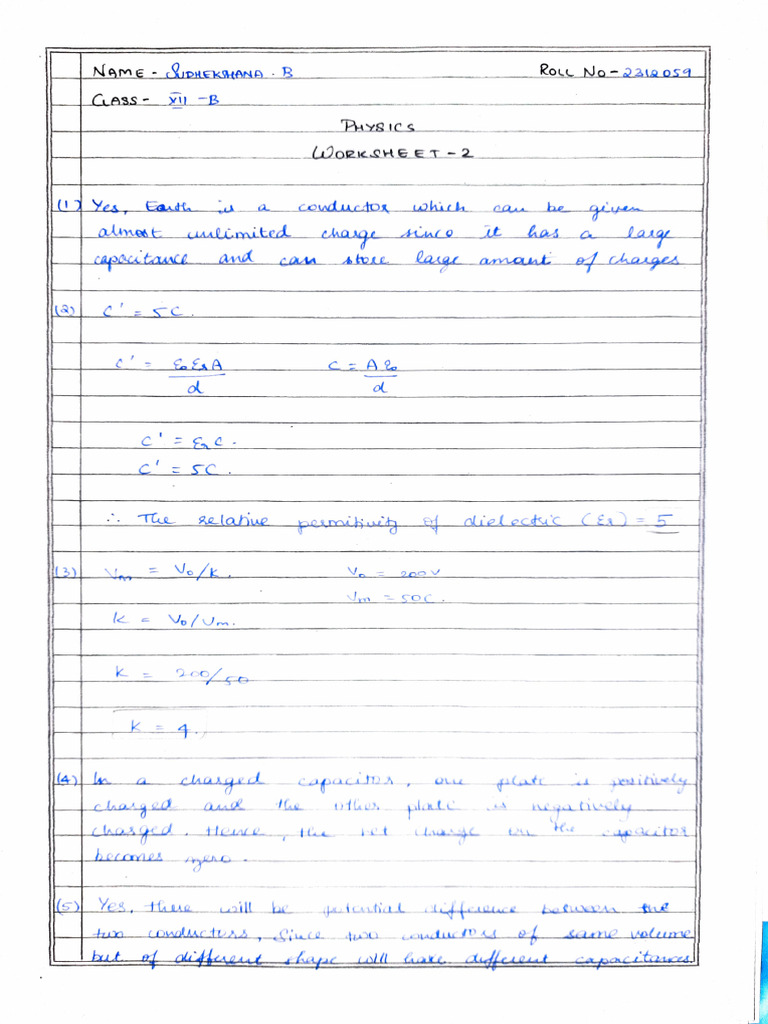 NAME - SUDHEKSHANA . B ROLL NO - 2312059
CLASS - XII - B
PHYSICS
WORKSHEET - 2
(1) Yes, Earth is a conductor which can be given
almost unlimited charge since it has a large
capacitance and can store large amount of charges
(2) C' = 5C.
C' = ε₀εrA/d C = Aε₀/d
C' = εrC.
C' = 5C.
∴ The relative permitivity of dielectric (εr) = 5
(3) Vm = V₀/K. V₀ = 200V
Vm = 50C.
K = V₀/Vm.
K = 200/50
K = 4.
(4) In a charged capacitor, one plate is positively
charged and the other plate is negatively
charged. Hence, the net charge on the capacitor
becomes zero.
(5) Yes, there will be potential difference between the
two conductors, Since two conductors of same volume
but of different shape will have different capacitances.